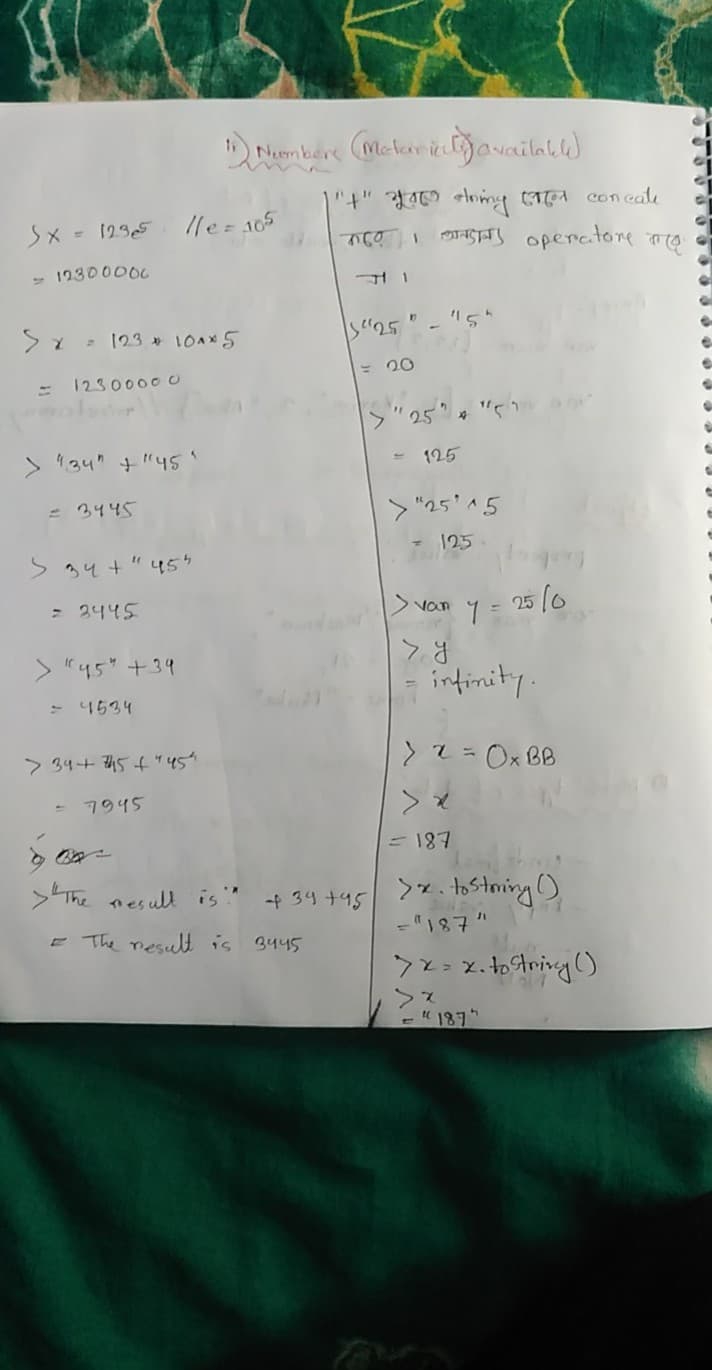 11) Numbers (Material available)
> x = 123e5 //e = 10⁵
= 12300000
> x = 123 * 10**5
= 12300000
> "34" + "45"
= 3445
> 34 + "45"
= 3445
> "45" + 34
= 4534
> 34 + 45 + "45"
= 7945
> "The result is:" + 34 + 45
= The result is 3445
"+" string পেলে concate
করে। অন্যান্য operatore করে
না।
> "25" - "5"
= 20
> "25" * "5"
= 125
> "25" * 5
= 125
> var y = 25/0
> y
= infinity.
> x = 0xBB
> x
= 187
> x.toString()
= "187"
> x = x.toString()
> x
= "187"